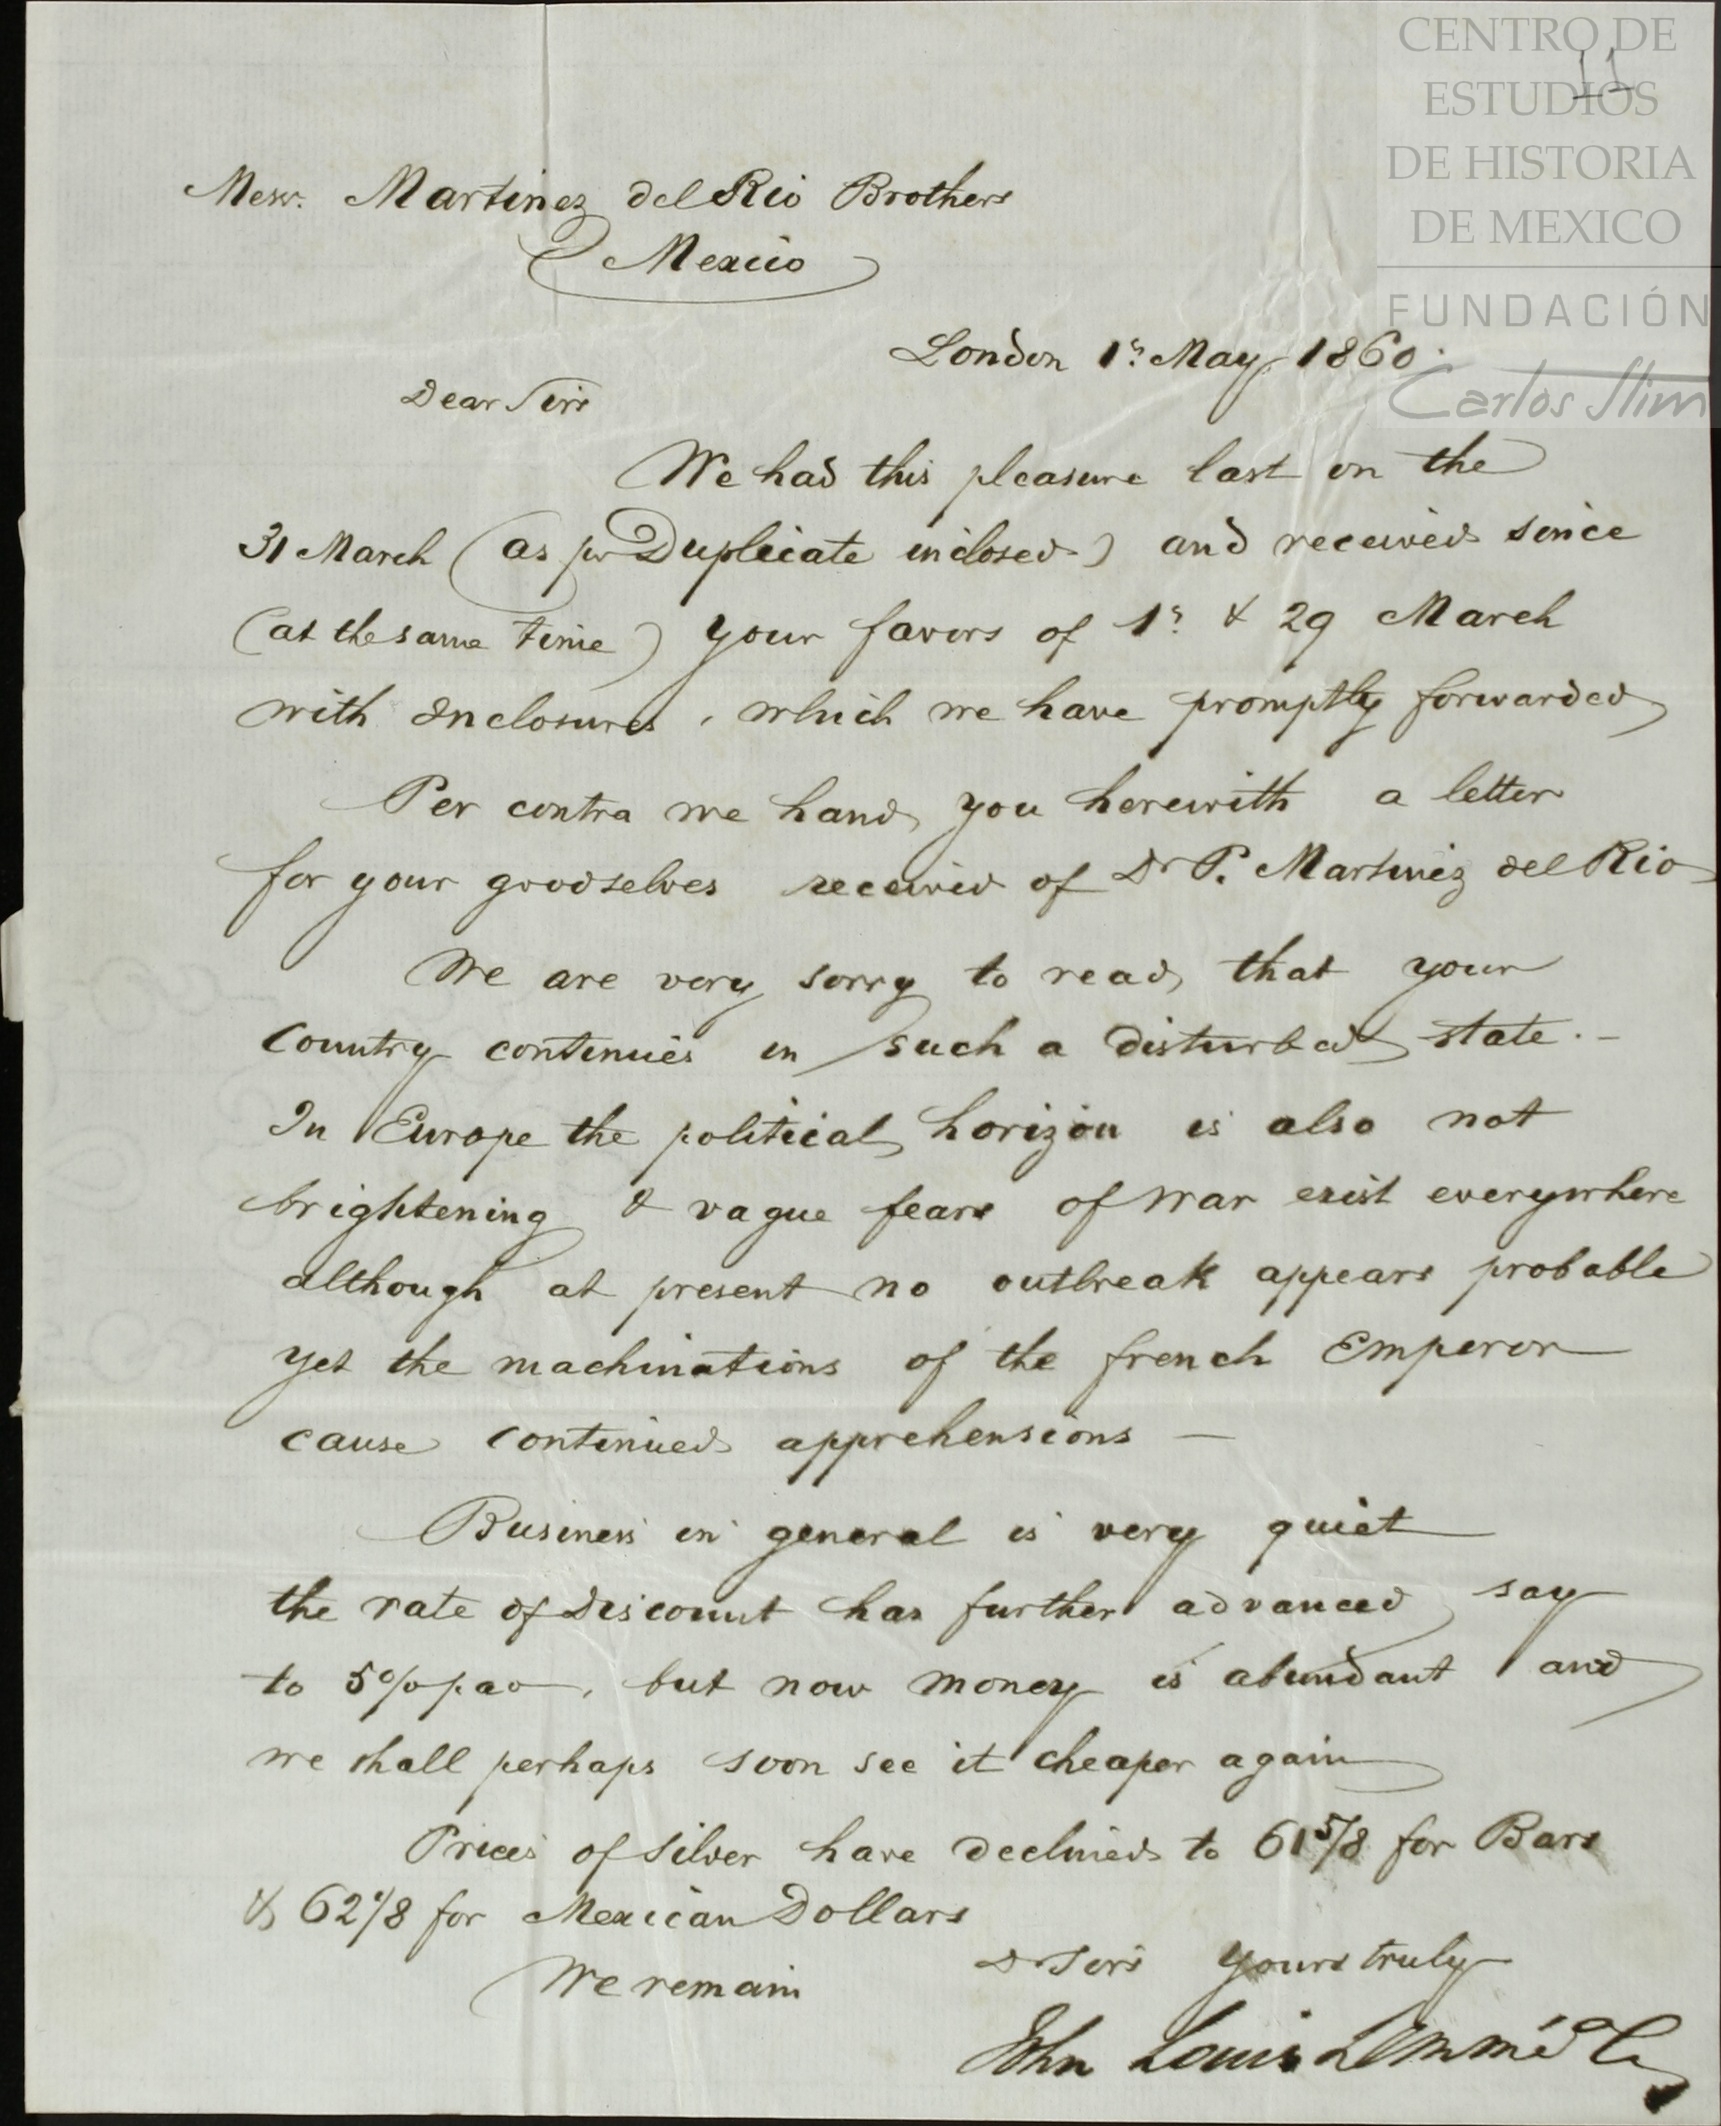 CENTRO DE
ESTUDIOS
DE HISTORIA
DE MEXICO
FUNDACIÓN
Carlos Slim
11
Messr. Martinez del Rio Brothers
Mexico
London 1st May 1860.
Dear Sirs
We had this pleasure last on the
31 March (as pr Duplicate inclosed) and received since
(at the same time) your favors of 1st & 29 March
with Enclosures, which we have promptly forwarded
Per contra we hand you herewith a letter
for your goodselves received of Dr P. Martinez del Rio
We are very sorry to read, that your
Country continues in such a disturbed state. –
In Europe the political horizon is also not
brightening & vague fears of war exist everywhere
although at present no outbreak appears probable
yet the machinations of the french Emperor
cause continued apprehensions —
Business in general is very quiet
the rate of Discount has further advanced, say
to 5%, but now money is abundant and
we shall perhaps soon see it cheaper again
Prices of Silver have declined to 61 5/8 for Bars
& 62 1/8 for Mexican Dollars
We remain
Dr Sirs Yours truly
John Louis Lemmé & Co